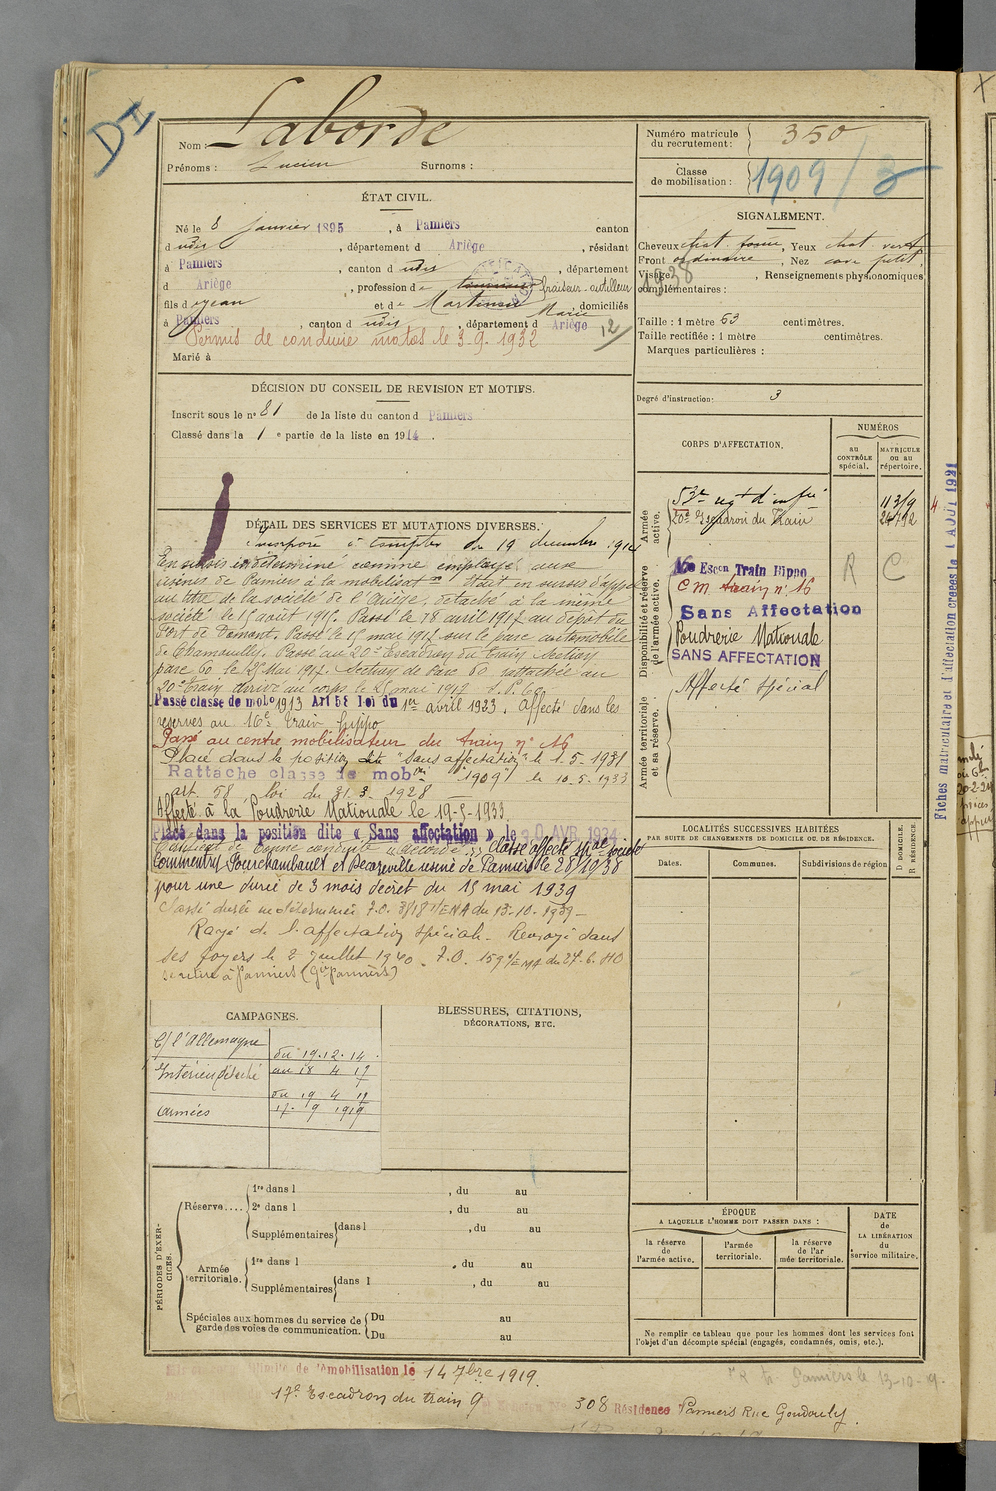 D II
Nom : Laborde
Prénoms : Lucien Surnoms :
ÉTAT CIVIL.
Né le 8 janvier 1895, à Pamiers canton
d udis, département d Ariège, résidant
à Pamiers, canton d udis, département
d Ariège, profession de fraiseur-outilleur
fils de Jean et de Martineau Marie, domiciliés
à Pamiers, canton d udis, département d Ariège 12/
Permis de conduire motos le 3.9.1932
Marié à
DÉCISION DU CONSEIL DE REVISION ET MOTIFS.
Inscrit sous le nº 81 de la liste du canton d Pamiers
Classé dans la 1e partie de la liste en 1914.
DÉTAIL DES SERVICES ET MUTATIONS DIVERSES.
Incorporé à compter du 19 décembre 1914
En sursis indéterminé comme employé aux
usines de Pamiers à la mobilisation. Était en sursis d'appel
au titre de la société de l'Ariège, détaché à la même
société le 15 août 1915. Passé le 18 avril 1917 au dépôt du
Fort de Domont. Passé le 15 mai 1917 sur le parc automobile
de Chamouilly. Passé au 20e Escadron du train Section
parc 60 le 25 Mai 1917. Section de Parc 60 rattachée au
20e train arrivé au corps le 25 mai 1917
Passé classe de mob 1913 Art 58 loi du 1er avril 1923. Affecté dans les
réserves au 16e Train hippo
Passé au centre mobilisateur du train n° 16
Placé dans la position dite "Sans affectation" le 1.5.1931
Rattaché classe de mobon "1909" le 10.5.1933
art. 58 loi du 31.3.1928
Affecté à la Poudrerie Nationale le 19-5-1933
Placé dans la position dite « Sans affectation » le 30 AVR 1934
Classé affecté spécial société
Commentry Fourchambault et Decazeville usine de Pamiers le 28/10/38
pour une durée de 3 mois décret du 15 mai 1939
Classé durée indéterminée F.O. 3818 1/EMA du 13-10-1939 -
Rayé de l'affectation spéciale - Renvoyé dans
ses foyers le 2 juillet 1940. F.O. 159 1/EMA du 24.6.40
se retire à Pamiers
CAMPAGNES.
C/ l'Allemagne
Intérieur détaché
du 19.12.14
au 18 4 17
Armées
du 19 4 17
17. 9 1919
BLESSURES, CITATIONS,
DÉCORATIONS, ETC.
PÉRIODES D'EXERCICES.
Réserve.... 1re dans l , du au
2e dans l , du au
Supplémentaires dans l , du au
Armée territoriale. 1re dans l , du au
Supplémentaires dans l , du au
Spéciales aux hommes du service de garde des voies de communication. Du au
Du au
démobilisation le 14 7bre 1919.
17e Escadron du train 9
308 Résidence Pamiers Rue Gondouly.
Numéro matricule du recrutement : 350
Classe de mobilisation : 1909 / 3
SIGNALEMENT.
Cheveux chat. foncé, Yeux chat. vert
Front ordinaire, Nez cave petit,
Visage , Renseignements physionomiques
complémentaires :
1938
Taille : 1 mètre 63 centimètres.
Taille rectifiée : 1 mètre centimètres.
Marques particulières :
Degré d'instruction : 3
CORPS D'AFFECTATION.
NUMÉROS
AU CONTRÔLE spécial.
MATRICULE OU AU répertoire.
Armée active.
53e regt d'infie 11319
20e Escadron du Train 24792
Disponibilité et réserve de l'armée active.
16e Escon Train Hippo R C
C M train n° 16
Sans Affectation
Poudrerie Nationale
SANS AFFECTATION
Armée territoriale et sa réserve.
Affecté spécial
LOCALITÉS SUCCESSIVES HABITÉES
PAR SUITE DE CHANGEMENTS DE DOMICILE OU DE RÉSIDENCE.
Dates. Communes. Subdivisions de région
D DOMICILE.
R RÉSIDENCE.
ÉPOQUE
A LAQUELLE L'HOMME DOIT PASSER DANS :
la réserve de l'armée active.
l'armée territoriale.
la réserve de l'armée territoriale.
DATE
de
LA LIBÉRATION
du
service militaire.
Ne remplir ce tableau que pour les hommes dont les services font
l'objet d'un décompte spécial (engagés, condamnés, omis, etc.).
Pamiers le 13-10-19.
Fiches matriculaire et d'affectation créées le 1 AOUT 1921